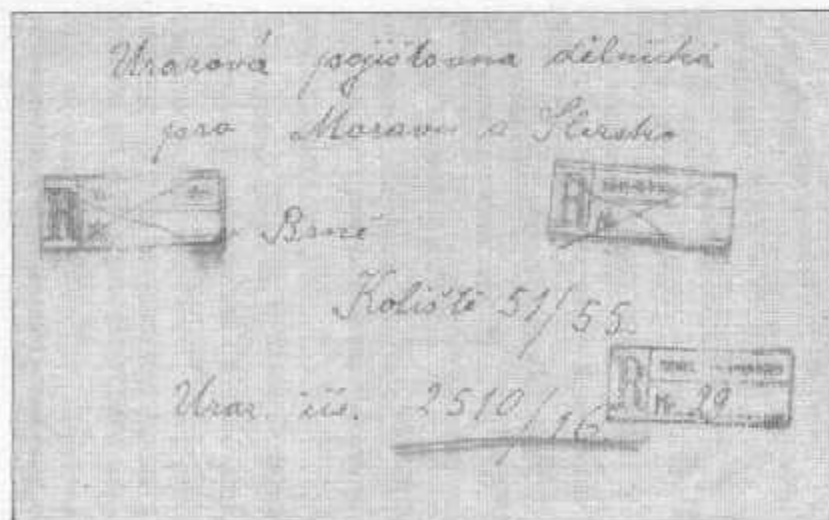 Urazová pojišťovna dělnická
pro Moravu a Slezsko
R
R
Nr.
v Brně
Koliště 51/55.
R
Nr. 29
Uraz. čís. 2510/16